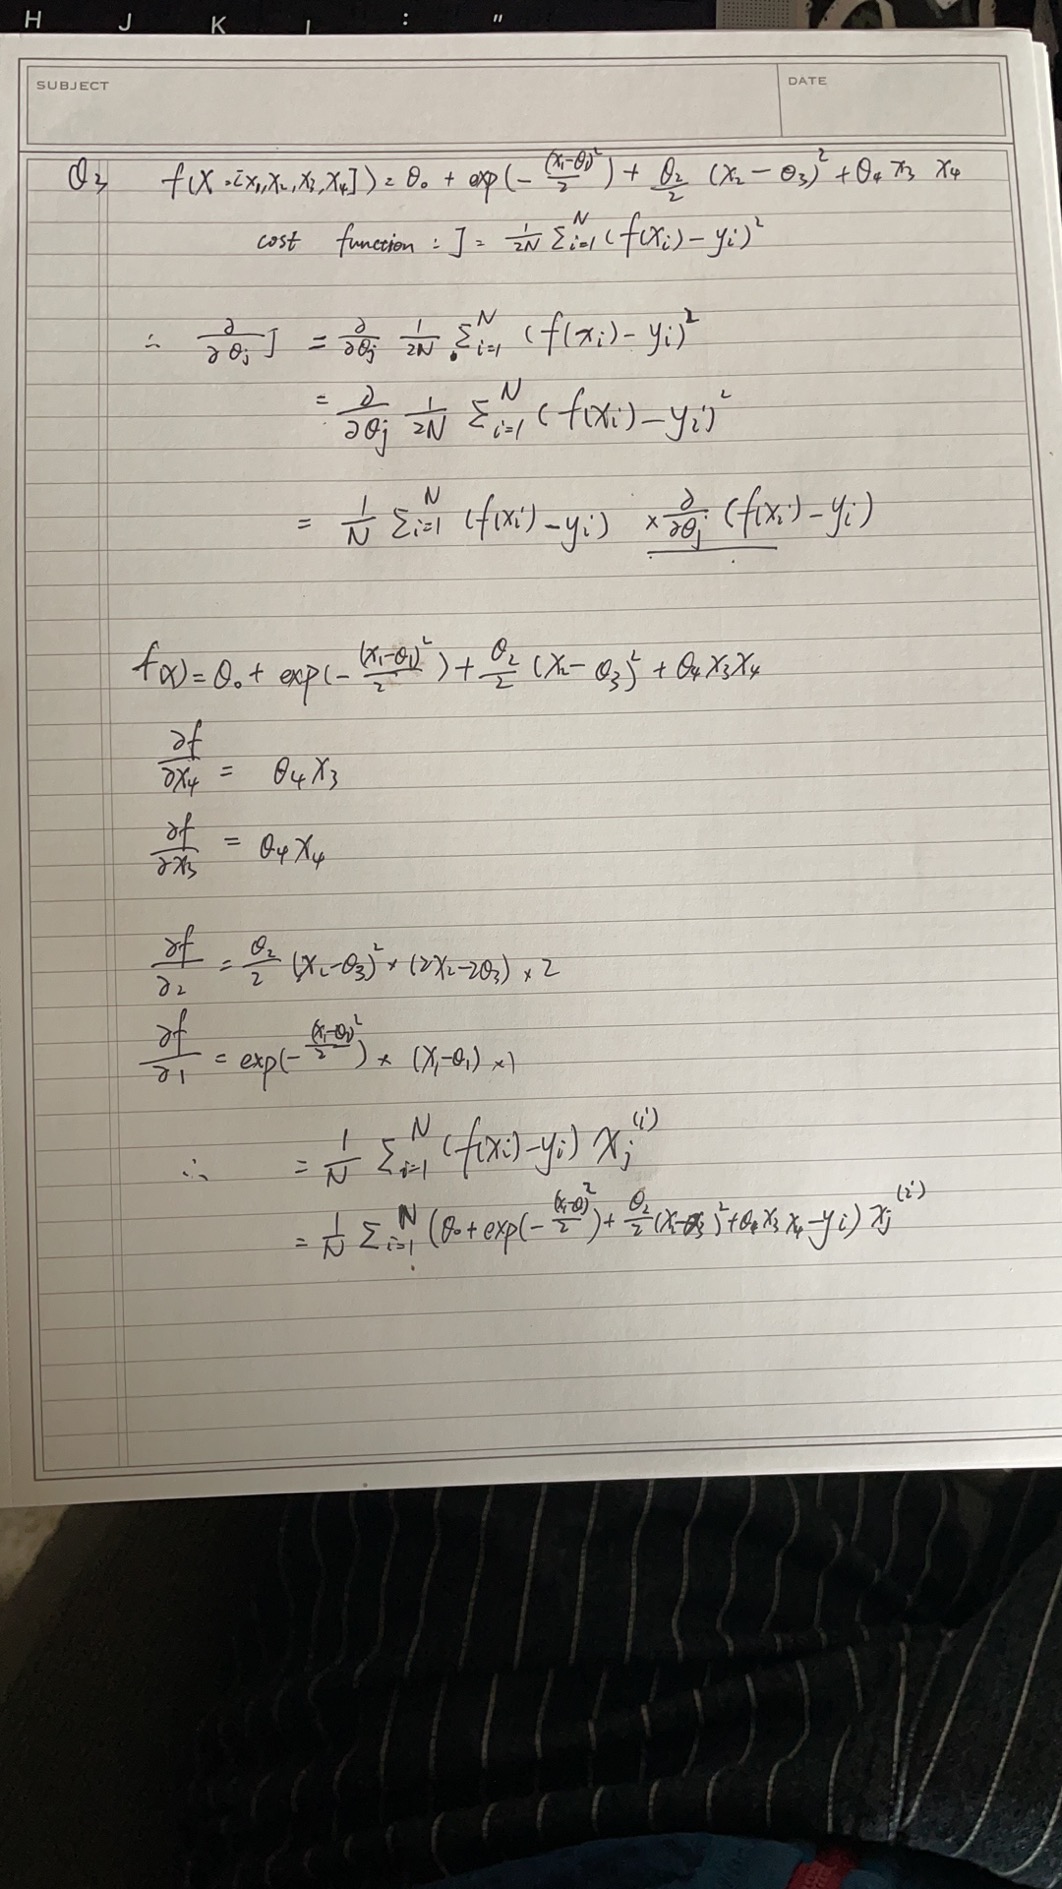 H J K L : "
SUBJECT DATE
Q3 f(X=[x₁,x₂,x₃,x₄]) = θ₀ + exp(-(x₁-θ₁)²/2) + θ₂/2 (x₂-θ₃)² + θ₄ x₃ x₄
cost function : J = 1/2N Σᵢ₌₁ᴺ (f(xᵢ) - yᵢ)²
∴ ∂/∂θⱼ J = ∂/∂θⱼ 1/2N Σᵢ₌₁ᴺ (f(xᵢ) - yᵢ)²
= ∂/∂θⱼ 1/2N Σᵢ₌₁ᴺ (f(xᵢ) - yᵢ)²
= 1/N Σᵢ₌₁ᴺ (f(xᵢ) - yᵢ) × ∂/∂θⱼ (f(xᵢ) - yᵢ)
f(x) = θ₀ + exp(-(x₁-θ₁)²/2) + θ₂/2 (x₂-θ₃)² + θ₄x₃x₄
∂f/∂x₄ = θ₄x₃
∂f/∂x₃ = θ₄x₄
∂f/∂2 = θ₂/2 (x₂-θ₃)² × (2x₂-2θ₃) × 2
∂f/∂1 = exp(-(x₁-θ₁)²/2) × (x₁-θ₁) × 1
∴ = 1/N Σᵢ₌₁ᴺ (f(xᵢ) - yᵢ) xⱼ⁽ⁱ⁾
= 1/N Σᵢ₌₁ᴺ (θ₀ + exp(-(x₁-θ)²/2) + θ₂/2 (x-θ₃)² + θ₄x₃x₄ - yᵢ) xⱼ⁽ⁱ⁾